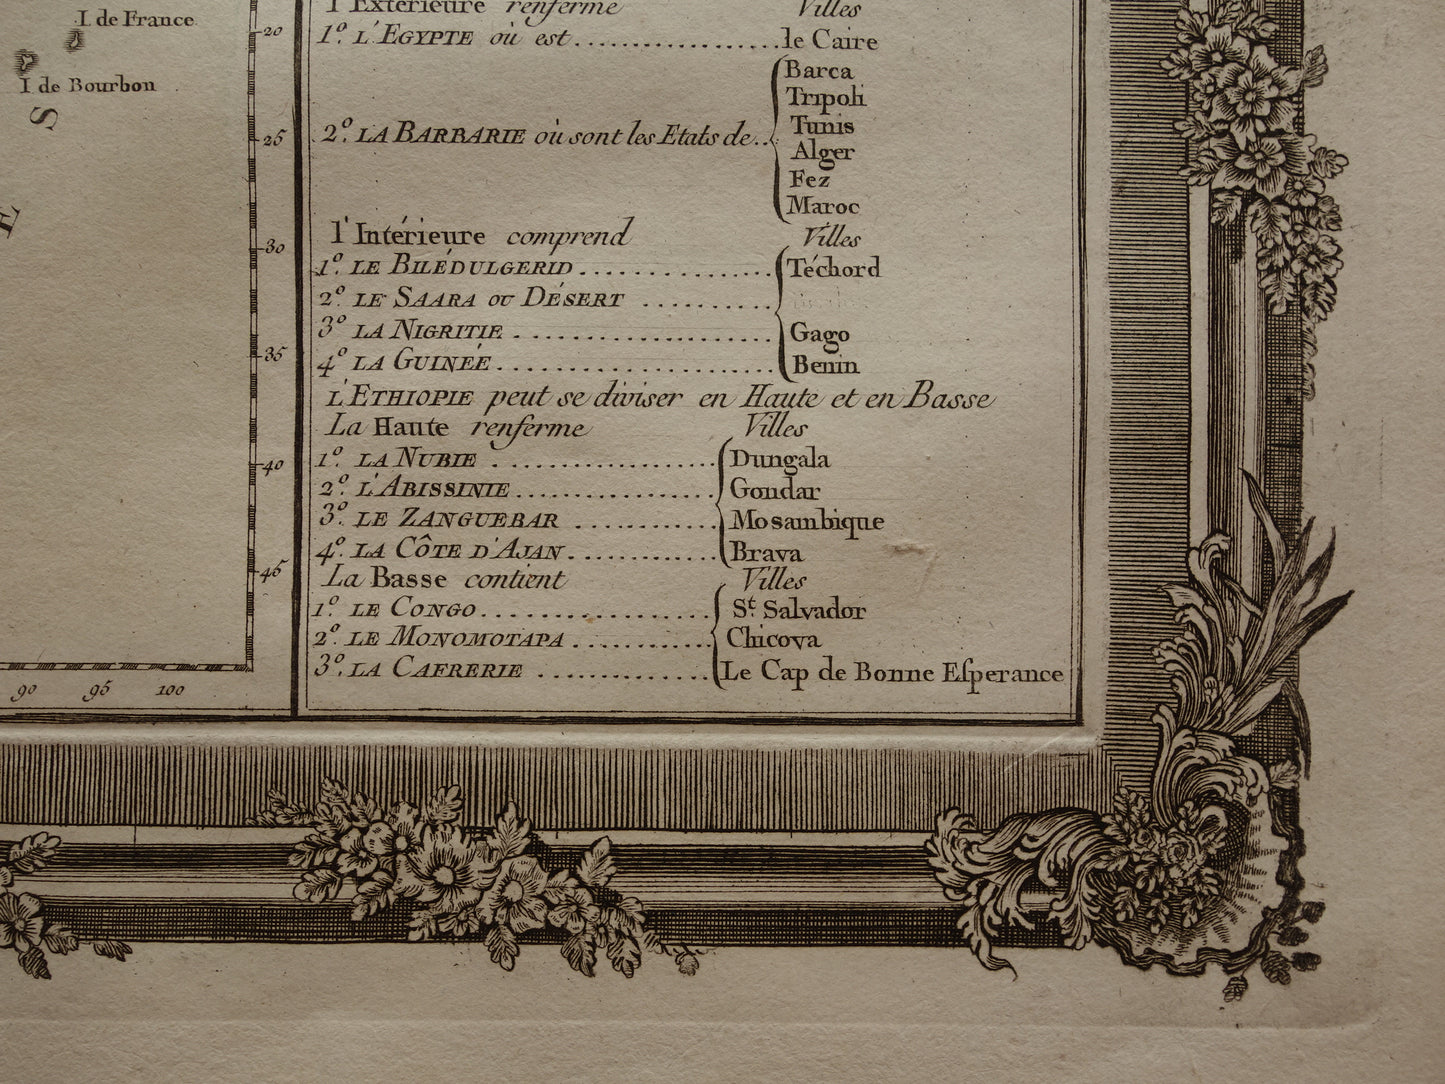 I de France
I de Bourbon
S
E
20
25
30
35
40
45
90 95 100
l'Extérieure renferme Villes
1º. L'EGYPTE où est le Caire
2º. LA BARBARIE où sont les Etats de
Barca
Tripoli
Tunis
Alger
Fez
Maroc
l'Intérieure comprend Villes
1º. LE BILÉDULGERID Téchord
2º. LE SAARA OU DÉSERT
3º LA NIGRITIE Gago
4º LA GUINÉE Benin
L'ETHIOPIE peut se diviser en Haute et en Basse
La Haute renferme Villes
1º. LA NUBIE Dungala
2º. L'ABISSINIE Gondar
3º. LE ZANGUEBAR Mosambique
4º. LA CÔTE D'AJAN Brava
La Basse contient Villes
1º. LE CONGO St. Salvador
2º. LE MONOMOTAPA Chicova
3º. LA CAFRERIE Le Cap de Bonne Eſperance